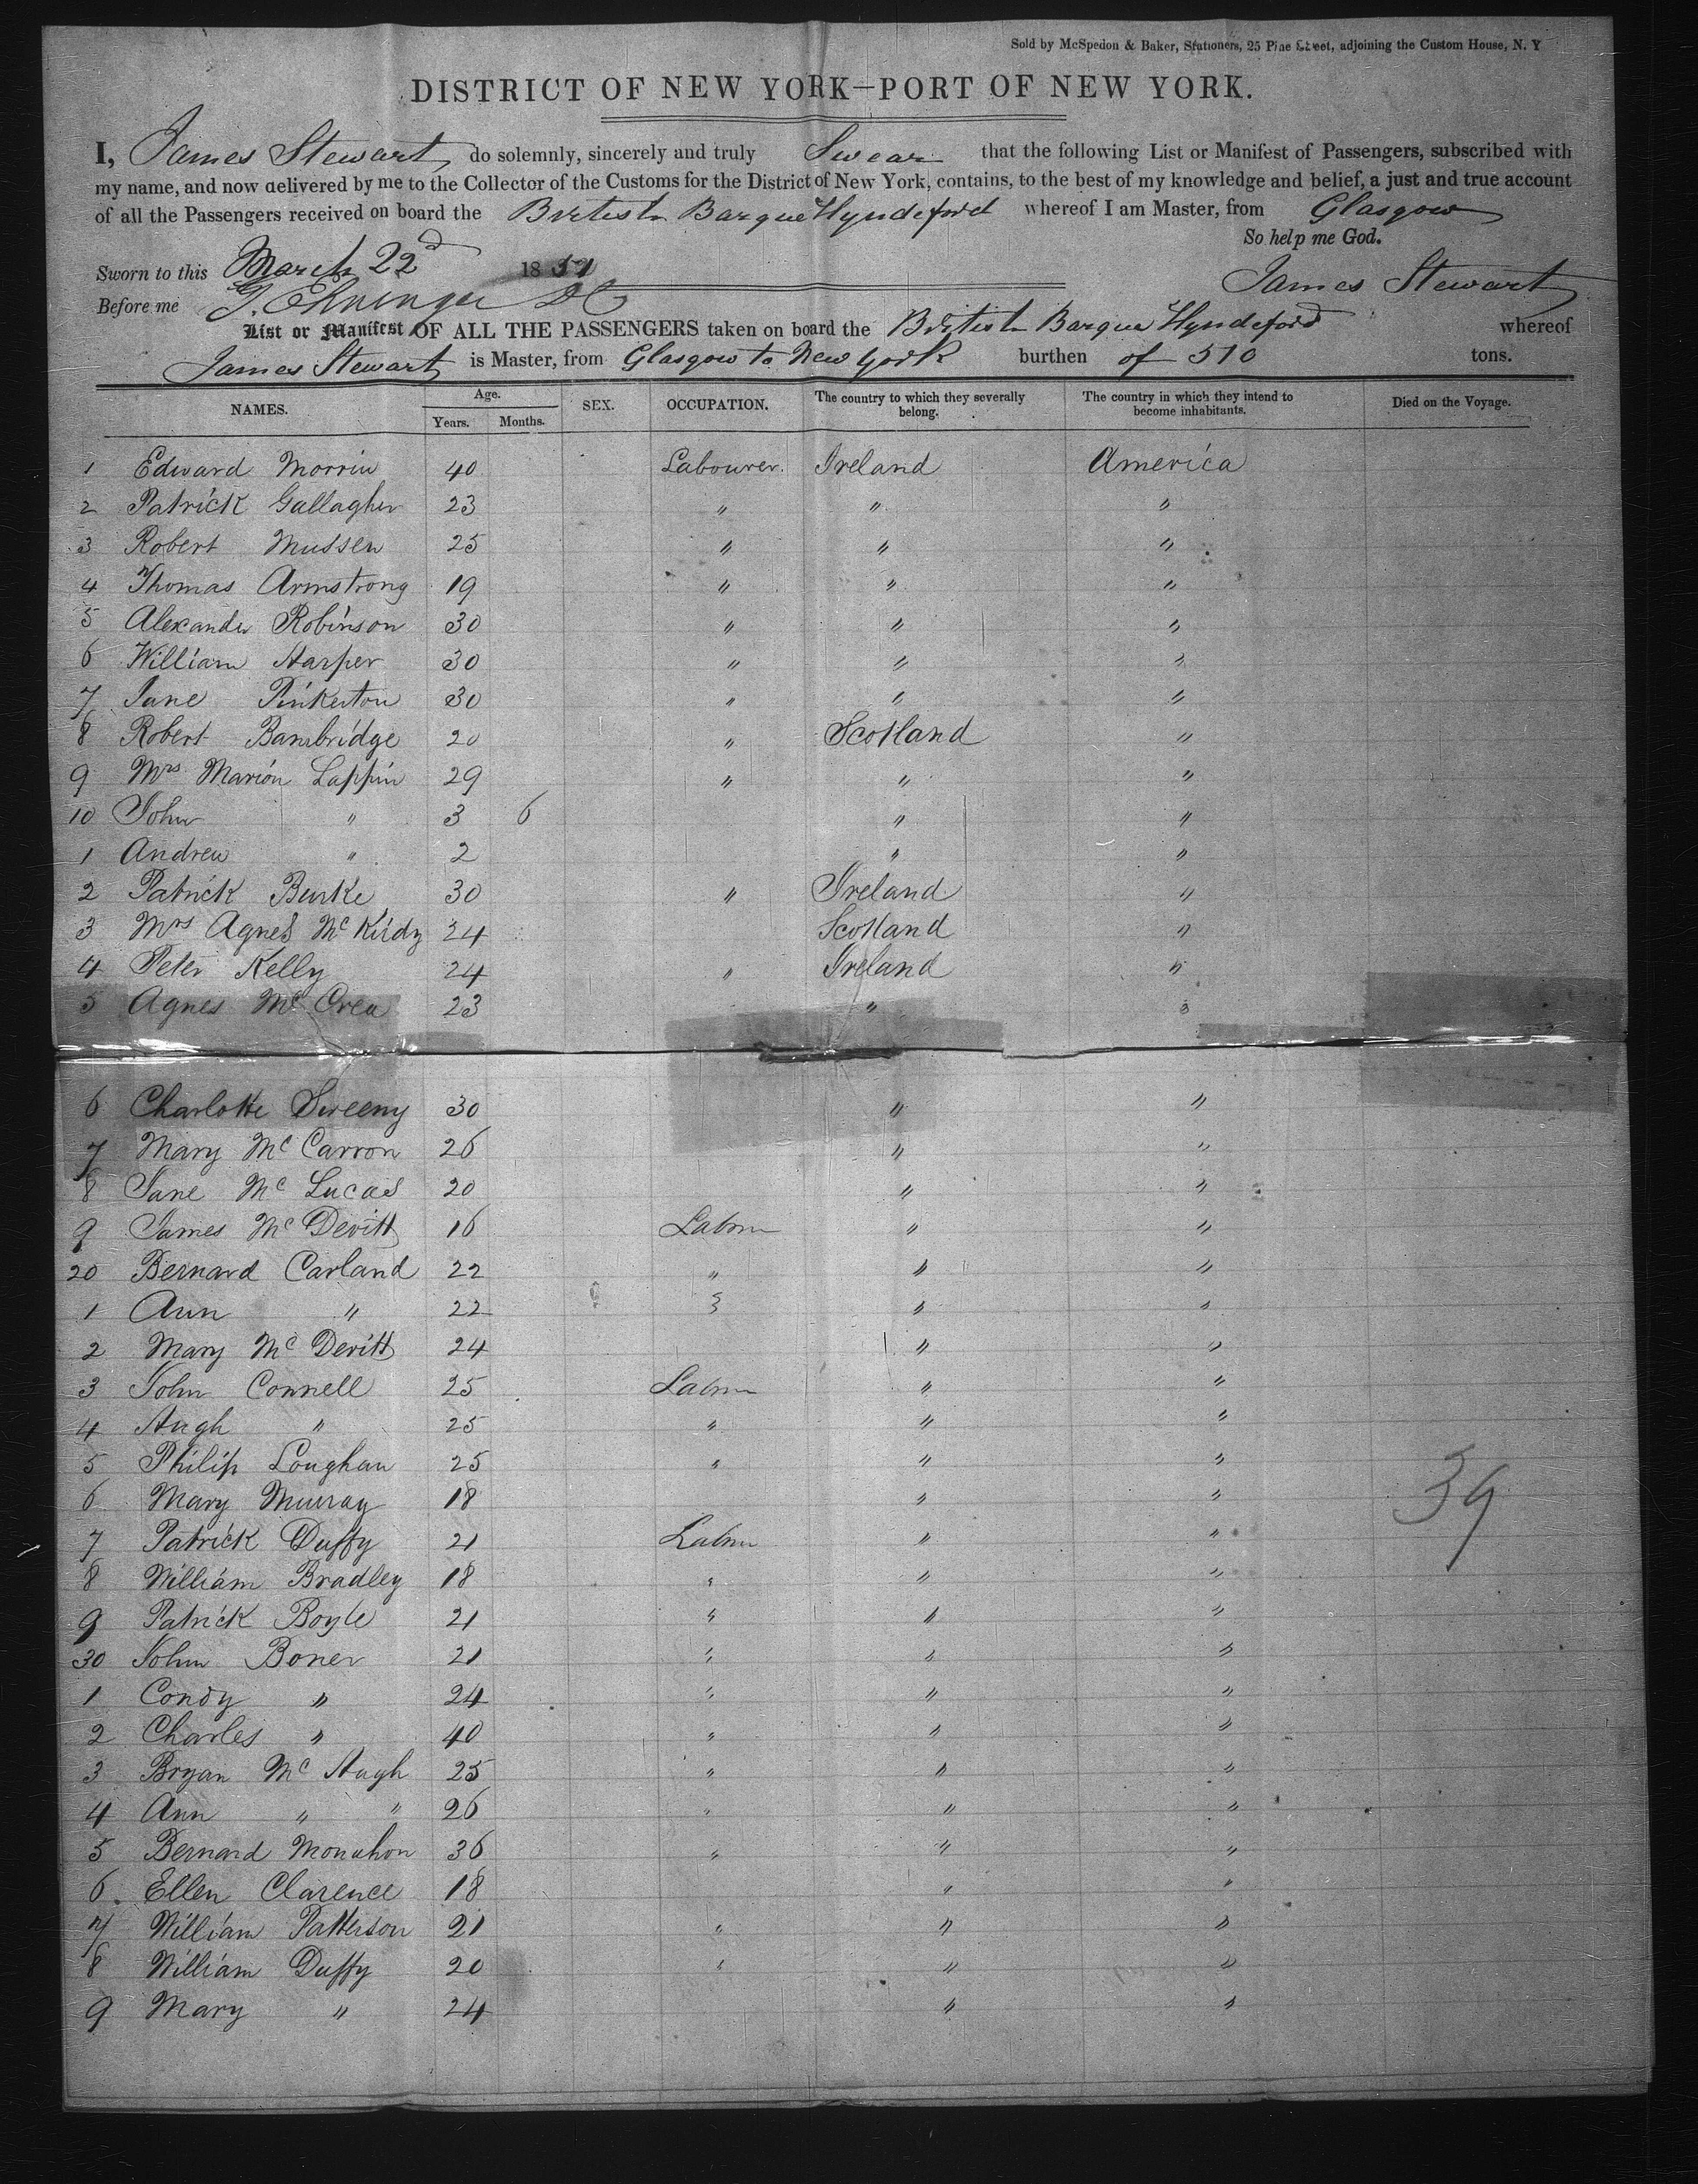 Sold by McSpedon & Baker, Stationers, 25 Pine Street, adjoining the Custom House, N. Y
DISTRICT OF NEW YORK—PORT OF NEW YORK.
I, James Stewart do solemnly, sincerely and truly Swear that the following List or Manifest of Passengers, subscribed with
my name, and now delivered by me to the Collector of the Customs for the District of New York, contains, to the best of my knowledge and belief, a just and true account
of all the Passengers received on board the British Barque Hyndeford whereof I am Master, from Glasgow
So help me God.
Sworn to this March 22d 1851
James Stewart
Before me
List or Manifest OF ALL THE PASSENGERS taken on board the British Barque Hyndeford whereof
James Stewart is Master, from Glasgow to New York burthen of 510 tons.
NAMES. Age. Years. Months. SEX. OCCUPATION. The country to which they severally belong. The country in which they intend to become inhabitants. Died on the Voyage.
1 Edward Morrin 40 Labourer. Ireland America
2 Patrick Gallagher 23 " " "
3 Robert Mussen 25 " " "
4 Thomas Armstrong 19 " " "
5 Alexander Robinson 30 " " "
6 William Harper 30 " " "
7 Jane Pinkerton 30 " " "
8 Robert Bambridge 20 " Scotland "
9 Mrs Marion Lappin 29 " " "
10 John " 3 6 " "
1 Andrew " 2 " "
2 Patrick Burke 30 " Ireland "
3 Mrs Agnes Mc Kirdy 24 Scotland "
4 Peter Kelly 24 " Ireland "
5 Agnes Mc Crea 23 " "
6 Charlotte Sweeny 30 " "
7 Mary Mc Carron 26 " "
8 Jane Mc Lucas 20 " "
9 James Mc Devitt 16 Labrr " "
20 Bernard Carland 22 " " "
1 Ann " 22 " " "
2 Mary Mc Devitt 24 " "
3 John Connell 25 Labrr " "
4 Hugh " 25 " " "
5 Philip Loughan 25 " " "
6 Mary Murray 18 " "
7 Patrick Duffy 21 Labrr " "
8 William Bradley 18 " " "
9 Patrick Boyle 21 " " "
30 John Boner 21 " " "
1 Condy " 24 " " "
2 Charles " 40 " " "
3 Bryan Mc Hugh 25 " " "
4 Ann " " 26 " " "
5 Bernard Monahon 36 " " "
6 Ellen Clarence 18 " "
7 William Patterson 21 " " "
8 William Duffy 20 " " "
9 Mary " 24 " "
39